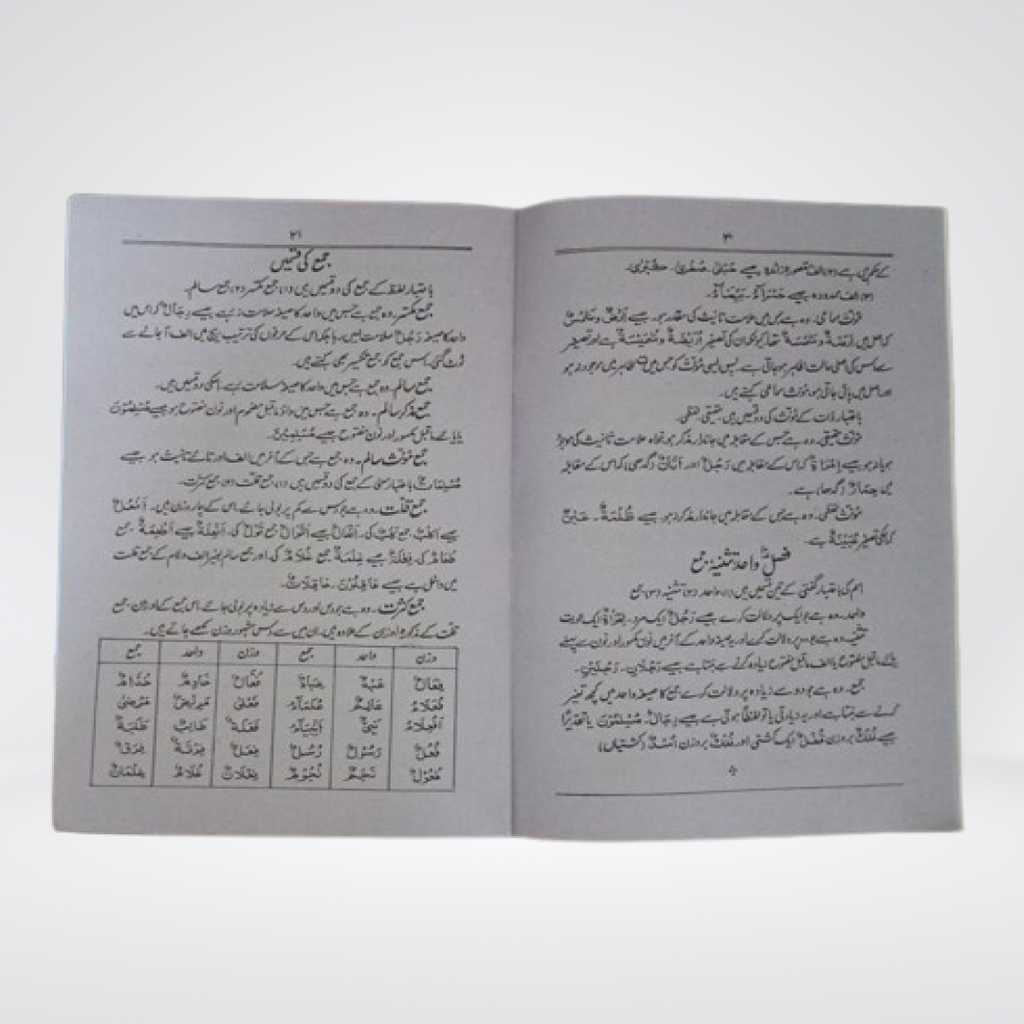 کے حکم میں ہے (۲) الف مقصورہ زائدہ جیسے حُبْلٰی۔ صُغْرٰی۔ کُبْرٰی۔
(۳) الف ممدودہ جیسے حَمْرَآءُ۔ بَیْضَآءُ۔
مؤنث سماعی۔ وہ ہے جس میں علامت تانیث کی مقدر ہو۔ جیسے اَرْضٌ و شَمْسٌ
کہ اصل میں اَرْضَۃٌ و شَمْسَۃٌ تھا کیونکہ ان کی تصغیر اُرَیْضَۃٌ و شُمَیْسَۃٌ ہے اور تصغیر
سے اسم کی اصلی حالت ظاہر ہو جاتی ہے پس ایسی مؤنث کو جس میں ۃ ظاہر میں موجود نہ ہو
اور اصل میں پائی جاتی ہو، مؤنث سماعی کہتے ہیں۔
باعتبار ذات کے مؤنث کی دو قسمیں ہیں۔ حقیقی لفظی۔
مؤنث حقیقی۔ وہ ہے جس کے مقابلہ میں جاندار مذکر ہو خواہ علامت تانیث کی موجود
ہو یا نہ ہو جیسے اِمْرَاَۃٌ کہ اس کے مقابلہ میں رَجُلٌ اور اَتَانٌ (گدھی) کہ اس کے مقابلہ
میں حِمَارٌ (گدھا) ہے۔
مؤنث لفظی۔ وہ ہے جس کے مقابلہ میں جاندار مذکر نہ ہو جیسے ظُلْمَۃٌ۔ عَیْنٌ
کہ اسکی تصغیر عُیَیْنَۃٌ ہے۔
فصل واحد تثنیہ جمع
اسم کی باعتبار گنتی کے تین قسمیں ہیں (۱) واحد (۲) تثنیہ (۳) جمع
واحد۔ وہ ہے جو ایک پر دلالت کرے جیسے رَجُلٌ ایک مرد۔ اِمْرَاَۃٌ ایک عورت
تثنیہ۔ وہ ہے جو دو پر دلالت کرے اور یہ صیغہ واحد کے آخر میں نون مکسور اور نون سے پہلے
ماقبل مفتوح یا الف ماقبل مفتوح زیادہ کرنے سے بنتا ہے جیسے رَجُلَانِ۔ رَجُلَیْنِ۔
جمع۔ وہ ہے جو دو سے زیادہ پر دلالت کرے جمع کا صیغہ واحد میں کچھ تغیر
کرنے سے بنتا ہے اور یہ زیادتی یا تو لفظاً ہوتی ہے جیسے رِجَالٌ۔ مُسْلِمُوْنَ یا تقدیرًا
جیسے فُلْكٌ بروزن قُفْلٌ ایک کشتی اور فُلْكٌ بروزن اُسْدٌ (کشتیاں)
۲۱
جمع کی قسمیں
باعتبار لفظ کے جمع کی دو قسمیں ہیں (۱) جمع مکسر (۲) جمع سالم۔
جمع مکسر۔ وہ جمع ہے جس میں واحد کا صیغہ سلامت نہ رہے جیسے رِجَالٌ کہ اس میں
واحد کا صیغہ رَجُلٌ سلامت نہیں، بلکہ اس کے حرفوں کی ترتیب بیچ میں الف آ جانے سے
ٹوٹ گئی، اس جمع کو جمع تکسیر بھی کہتے ہیں۔
جمع سالم۔ وہ جمع ہے جس میں واحد کا صیغہ سلامت رہے، اسکی دو قسمیں ہیں۔
جمع مذکر سالم۔ وہ جمع ہے جس میں واؤ ماقبل مضموم اور نون مفتوح ہو جیسے مُسْلِمُوْنَ
یا یائے ماقبل مکسور اور نون مفتوح جیسے مُسْلِمِیْنَ۔
جمع مؤنث سالم۔ وہ جمع ہے جس کے آخر میں الف اور تائے تانیث ہو جیسے
مُسْلِمَاتٌ باعتبار معنی کے جمع کی دو قسمیں ہیں (۱) جمع قلت (۲) جمع کثرت۔
جمع قلت۔ وہ ہے جو دس سے کم پر بولی جائے، اس کے چار وزن ہیں۔ اَفْعُلٌ
جیسے اَکْلُبٌ جمع کَلْبٌ کی۔ اَفْعَالٌ جیسے اَقْوَالٌ جمع قَوْلٌ کی۔ اَفْعِلَۃٌ جیسے اَطْعِمَۃٌ جمع
طَعَامٌ کی۔ فِعْلَۃٌ جیسے غِلْمَۃٌ جمع غُلَامٌ کی۔ اور جمع سالم بغیر الف ولام کے جمع قلت
میں داخل ہے جیسے عَاقِلُوْنَ۔ عَاقِلَاتٌ۔
جمع کثرت۔ وہ ہے جو دس اور دس سے زیادہ پر بولی جائے، اس جمع کے اوزان جمع
قلت کے مذکورہ اوزان کے علاوہ ہیں، ان میں سے دس مشہور وزن لکھے جاتے ہیں۔
وزن واحد جمع وزن واحد جمع
فِعَالٌ عَبْدٌ عِبَادٌ فُعَّالٌ خَادِمٌ خُدَّامٌ
فُعَلَاءُ عَالِمٌ عُلَمَاءُ فَعْلٰی مَرِیْضٌ مَرْضٰی
اَفْعِلَاءُ نَبِیٌّ اَنْبِیَاءُ فَعَلَۃٌ طَالِبٌ طَلَبَۃٌ
فُعُلٌ رَسُوْلٌ رُسُلٌ فِعَلٌ فِرْقَۃٌ فِرَقٌ
فُعُوْلٌ نَجْمٌ نُجُوْمٌ فِعْلَانٌ غُلَامٌ غِلْمَانٌ